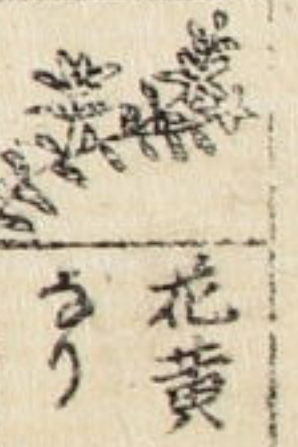 花黄
なり